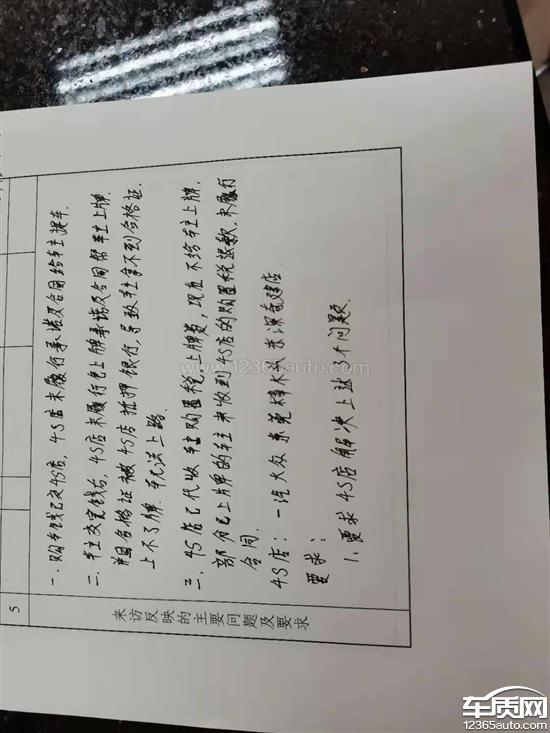 5
来访反映的主要问题及要求
一、购车钱已交4S店，4S店未履行承诺及合同给车主提车.
二、车主交完钱后，4S店未履行免上牌承诺及合同帮车主上牌.
合格证被4S店抵押银行，导致车主拿不到合格证.
上不了牌. 车无法上路.
三、4S店已代收车主购置税、上牌费，现在不给车主上牌，
部分已上牌的车主未收到4S店的购置税退款、未履行
合同.
4S店：一汽大众东莞樟木头
要求：
1、要求4S店解决上述3个问题.
www.12365auto.com
车质网
12365auto.com